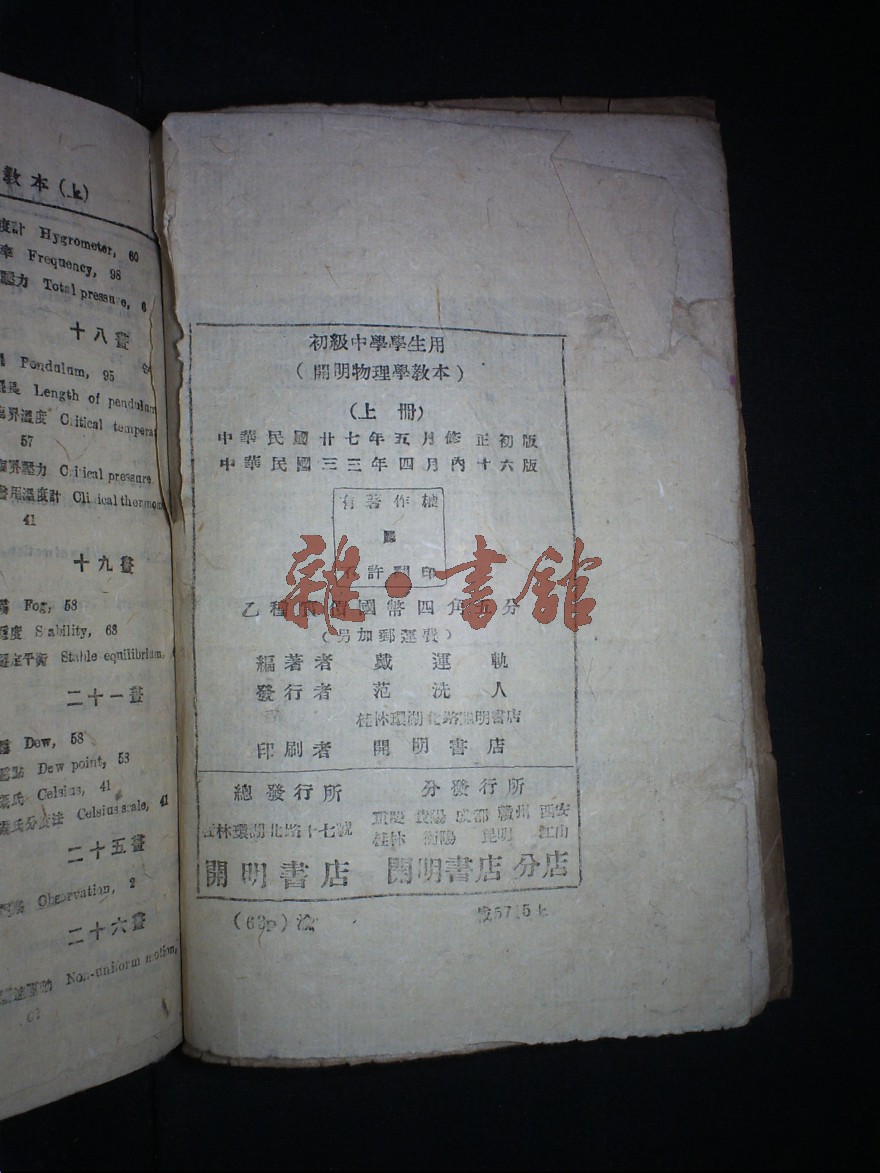 教本(上)
度計 Hygrometer, 60
率 Frequency, 98
壓力 Total pressure, 6
十八畫
Pendulum, 95
Length of pendulum
臨界溫度 Critical temperat
57
臨界壓力 Critical pressure
醫用溫度計 Clinical thermom
41
十九畫
霧 Fog, 58
穩度 Stability, 63
穩定平衡 Stable equilibrium,
二十一畫
露 Dew, 58
露點 Dew point, 58
Celsius, 41
Celsius scale, 41
二十五畫
Observation, 2
二十六畫
Non-uniform motion,
61
初級中學學生用
(開明物理學教本)
(上冊)
中華民國廿七年五月修正初版
中華民國三三年四月內十六版
有著作權
不許翻印
乙種 價國幣四角五分
(另加郵運費)
編著者 戴運軌
發行者 范洗人
桂林環湖北路開明書店
印刷者 開明書店
總發行所 分發行所
桂林環湖北路十七號
重慶 貴陽 成都 贛州 西安
桂林 衡陽 昆明 江山
開明書店 開明書店分店
(63p)
5715上
雜·書館